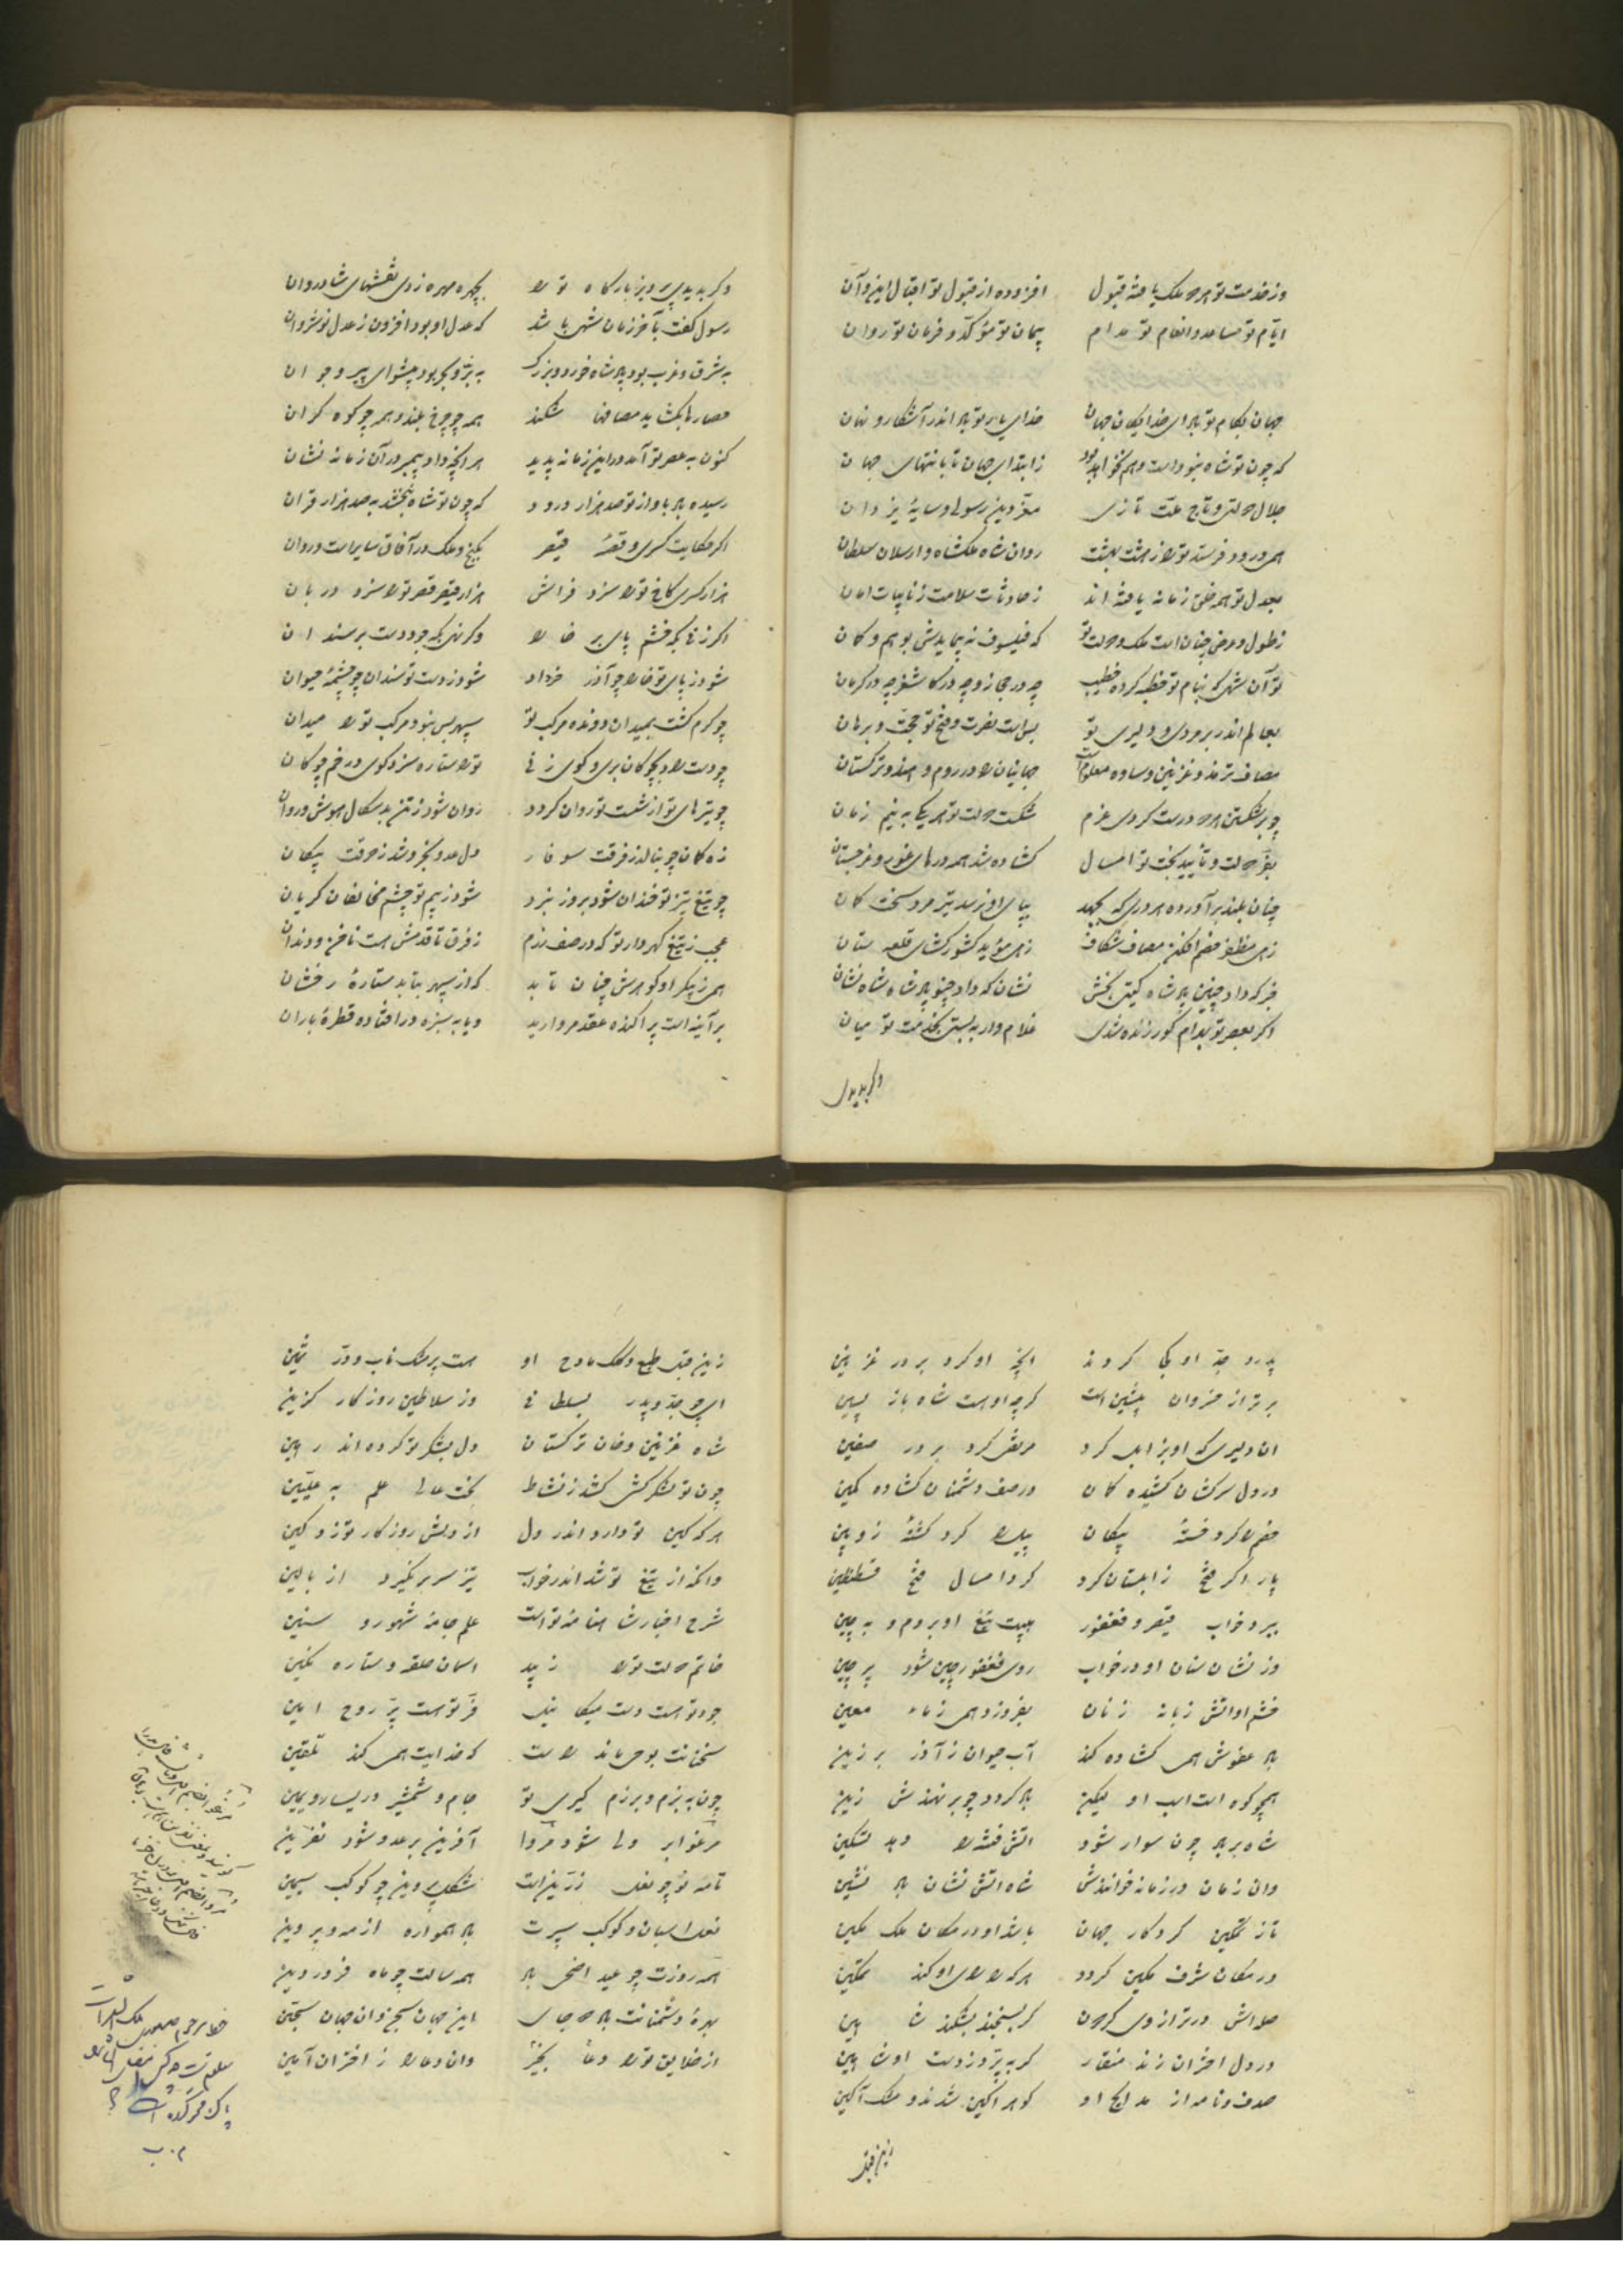 وز خدمت تو هر ملک یافته قبول افزوده از قبول تو اقبال این و آن
ایّام تو مساعد و انعام تو مدام پیمان تو مؤکّد و فرمان تو روان
جهان بکام تو باد ای خدایگان جهان خدای یار تو باد اندر آشکار و نهان
که چون تو شاه نبوداست و هم نخواهد بود ز ابتدای جهان تا بانتهای جهان
جلال دولتی و تاج ملّت تازی معزّ دین رسولی و سایهٔ یزدان
همی درود فرستد تو را ز هشت بهشت روان شاه ملکشاه و ارسلان سلطان
بعدل تو همه خلق زمانه یافته اند ز حادثات سلامت ز نایبات امان
ز طول و عرض چنان است ملک و دولت تو که فیلسوف نه پیمایدش بوهم و گمان
تو آن شهی که بنام تو خطبه کرده خطیب چه در حجاز و چه در کاشغر چه در کرمان
بعالم اندر بر مردی و دلیری تو بس است نصرت و فتح تو حجّت و برهان
مصاف ترمذ و غزنین و ساوه معلوم است جهانیان را در روم و هند و ترکستان
چو بر شکستن هر درست کردی عزم شکست دولت تو هر یکی به نیم زمان
بفرّ دولت و تأیید بخت تو امسال گشاده شد همه درهای غور و غرجستان
چنان بلند برآورده هر دری که بجهد بپای او نرسد تیر مرد سخت کمان
زهی مظفر خصم افکن مصاف شکاف زهی مؤید کشورگشای قلعه ستان
فر که داد چنین باد شاه گیتی بخش نشان که داد چنو باد شاه شاه نشان
اگر بعصر تو بهرام گور زنده شدی غلام وار ببستی بخدمت تو میان
وگر بدیدی
وگر بدیدی پرویز بارگاه تو را بچهره مهره زدی نقشهای شادروان
رسول گفت بآخر زمان شهی باشد که عدل او بود افزون ز عدل نوشروان
به شرق و غرب بود پادشاه خرد و بزرگ به بود پیشوای پیر و جوان
حصارها بگشاید مصافها شکند همه چو چرخ بلند و همه چو کوه گران
کنون به عصر تو آمد در این زمانه پدید هر آنچه داد پیمبر در آن زمانه نشان
رسیده باد باو از تو صد هزار درود که چون تو شاه نبخشد به صد هزار قران
اگر حکایت کسری و قصهٔ قیصر بگنج و ملک در آفاق سایر است و روان
هزار کسری کاخ تو را سزد فراش هزار قیصر قصر تو را سزد دربان
اگر ز که خشم پای بر خارا وگر نهی که جود دست بر سندان
شود ز پای تو خارا چو آذر خرداد شود ز دست تو سندان چو چشمهٔ حیوان
چو گرم گشت بمیدان دونده مرکب تو سپهر بس نبود مرکب تو را میدان
چو دست را به چوگان بری و گوی زنی تو را ستاره سزد گوی در خم چوگان
چو تیرهای تو از شست تو روان گردد روان شود ز تن بدسگال هوش و روان
زه کمان چو بنالد ز فرقت سوفار دل عدو بخروشد ز حرقت پیکان
چو تیغ تیز تو خندان شود بروز نبرد شود ز بیم تو چشم مخالفان گریان
عجب ز تیغ گهردار تو که در صف رزم ز فرق تا قدمش هست ناخن و دندان
همی ز پیکر او گوهرش چنان تابد که از سپهر بتابد ستارهٔ رخشان
بر آینه است پراکنده عقد مروارید ویا به سبزه درافتاده قطرهٔ باران
پدر و جدّ او کجا کردند آنچه او کرد بر در غزنین
برتر از خسروان پیشین است گرچه او هست شاه باز پسین
آن دلیری که او بزابل کرد مرتضی کرد بر در صفین
در دل سرکشان کشیده کمان در صف دشمنان گشاده کمین
خصم را کرد خستهٔ پیکان پیل را کرد کشتهٔ زوبین
پار اگر فتح زابلستان کرد کرد امسال فتح قسطنطین
ببرد خواب قیصر و فغفور هیبت تیغ او بروم و به چین
وز نشان سنان او در خواب روی فغفور چین شود پر چین
خشم او آتش زبانه زنان بفروزد همی ز ماء معین
باد عفوش همی گشاده کند آب حیوان ز آذر برزین
همچو کوه است اسب او لیکن باد گردد چو بر نهندش زین
شاه بر باد چون سوار شود آتش فتنه را دهد تسکین
وان زمان در زمانه خوانندش شاه آتش نشان باد نشین
تا ز تمکین کردگار جهان باشد او در مکان ملک مکین
در مکان شرف مکین گردد هر که را رای او کند تمکین
حمله اش در ترازوی گردون گر بسنجند بشکند شاهین
در دل اختران زند منقار گر بپرّد ز دست او شاهین
صدف و نامه از مدایح او گوهر آگین شدند و مشک آگین
زین قبل
زین قبل طبع و کلک مادح او هست پر مشک ناب و درّ ثمین
ای چو جدّ و پدر بسلطانی وز سلاطین روزگار گزین
شاه غزنین و خان ترکستان دل بشکر تو کرده اند رهین
چون تو لشکر کشی کشد ز نشاط بخت عالی علم به علّیّین
هر که کین تو دارد اندر دل از دلش روزگار توزد کین
وانکه از تیغ تو شد اندر خواب نیز سر بر نگیرد از بالین
شرح اخبار شاهنامهٔ تو است علم جامهٔ شهور و سنین
خاتم دولت تو را زیبد آسمان حلقه و ستاره نگین
جود تو هست دست میکائیل فرّ تو هست پرّ روح امین
سخنانت بوحی ماند راست که خدایت همی کند تلقین
چون به بزم و برزم گیری تو جام و شمشیر در یسار و یمین
مرغوا بر ولی شود مروا آفرین بر عدو شود نفرین
تا مه نو چو نعل زرّین است شکل پروین چو کوکب سیمین
نعل اسبان و کوکب سپرت باد همواره از مه و پروین
همه روزت چو عید اضحی باد همه سالت چو ماه فروردین
بهرهٔ دشمنانت باد دو جای این جهان سجن و آن جهان سجّین
از خلایق تو را دعا بخیر وان دعا را ز اختران آمین